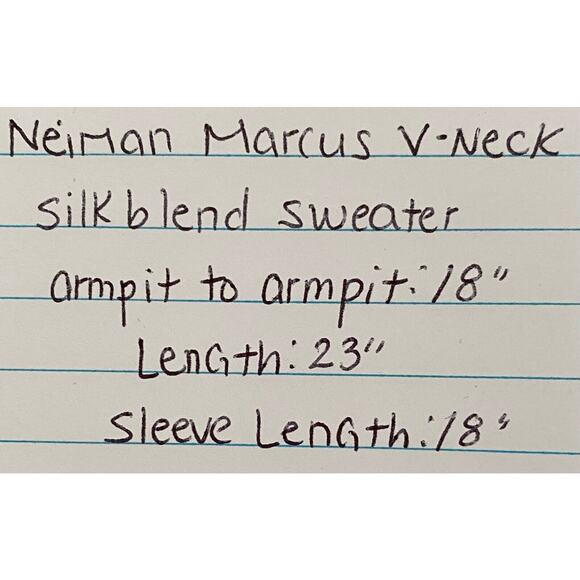 Neiman Marcus V-Neck
silk blend sweater
armpit to armpit: 18"
Length: 23"
Sleeve Length: 18"